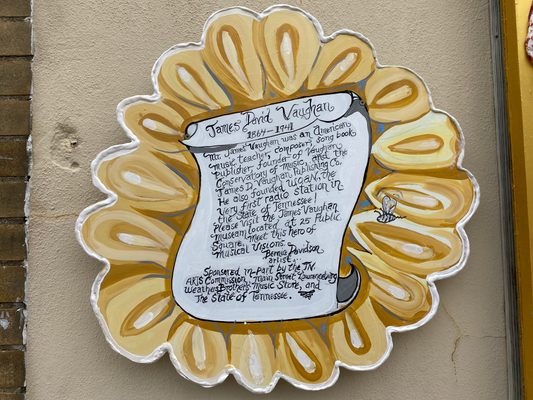 James David Vaughan
1864-1941
Mr. James Vaughan was an American
music teacher, composer, song book
publisher, founder of Vaughan
Conservatory of music, and the
James D. Vaughan Publishing Co.
He also founded WOAN, the
very first radio station in
the State of Tennessee!
Please visit the James Vaughan
Museum located at 25 Public
Square. Meet this hero of
musical visions.
Bernice Davidson
artist
Sponsored in part by the TN.
ARTS Commission, Main Street Lawrenceburg,
Weathers Brothers Music Store, and
The State of Tennessee.